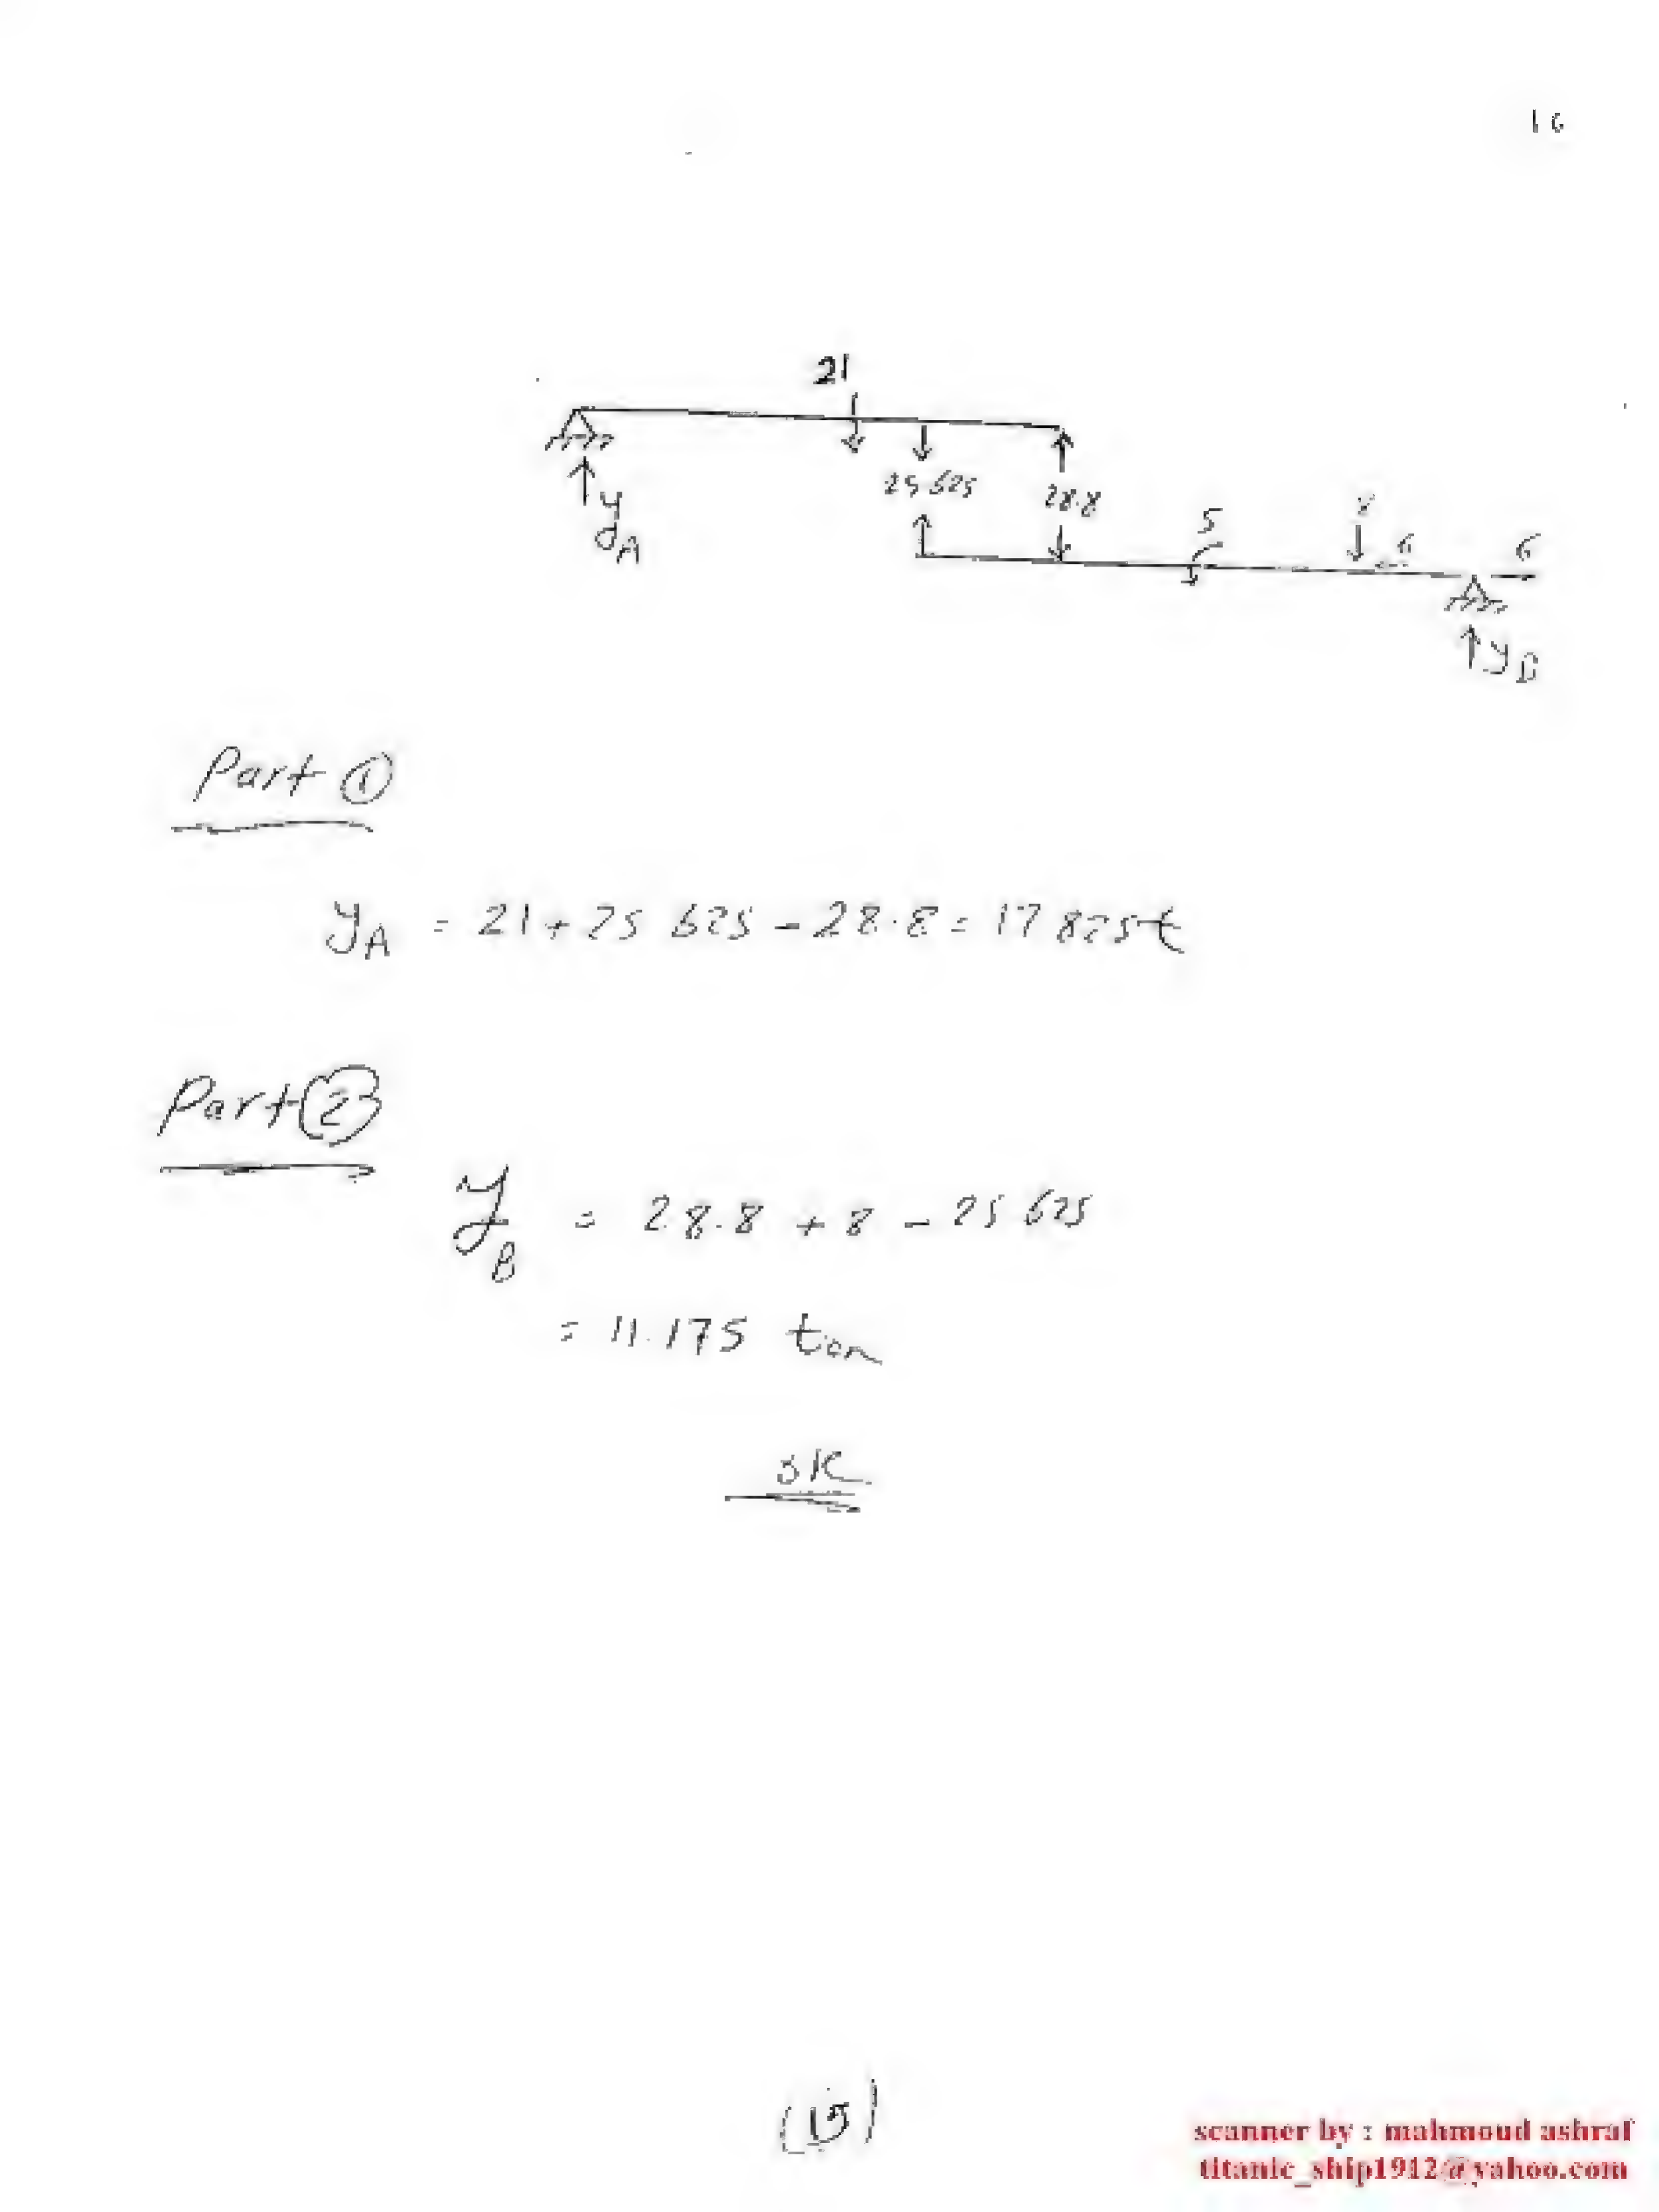 16
21
25.625
28.8
yA
5
6
6
yB
Part ①
yA = 21 + 25 625 - 28.8 = 17 825 t
Part ②
yB = 28.8 + 8 - 25 625
= 11.175 ton
(15)
scanner by : mahmoud ashraf
titanic_ship1912@yahoo.com